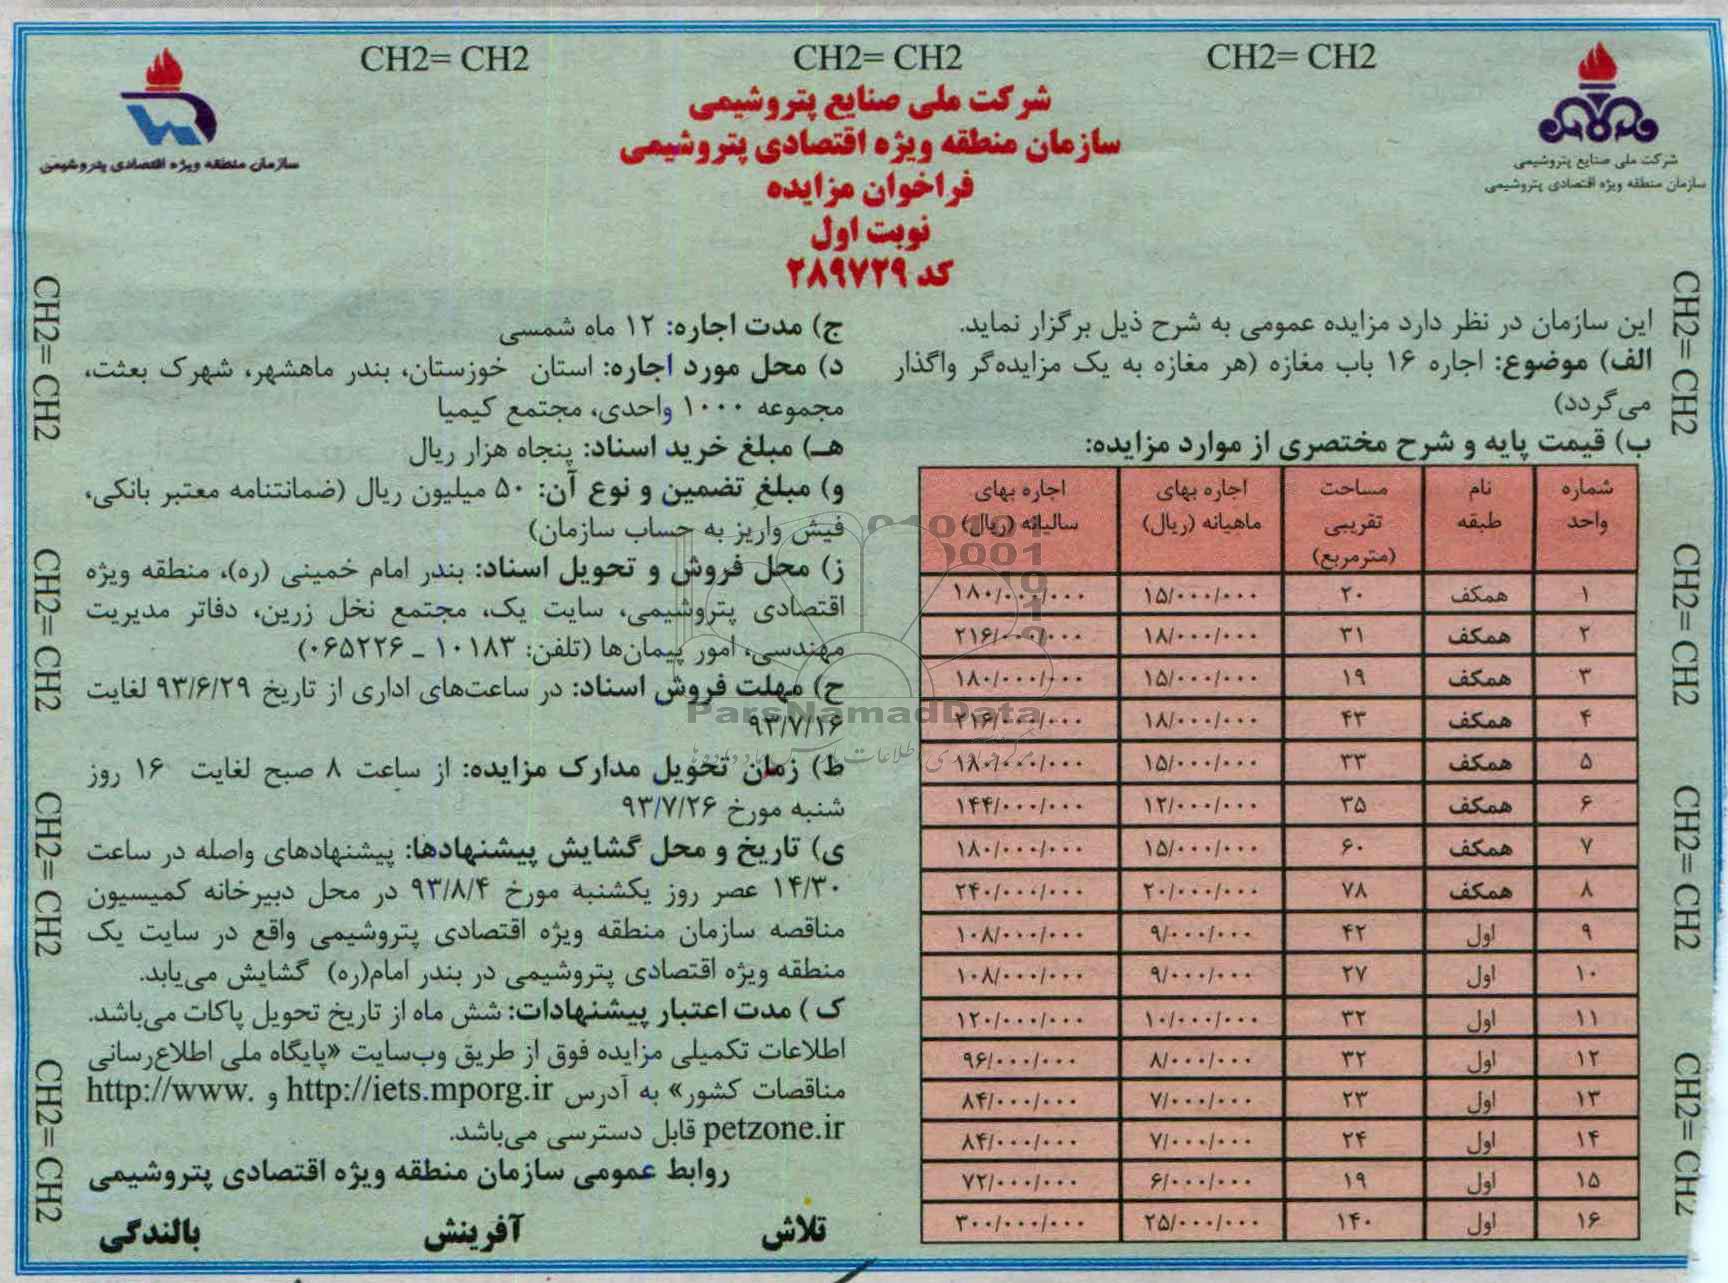 CH2= CH2 CH2= CH2 CH2= CH2
شرکت ملی صنایع پتروشیمی
سازمان منطقه ویژه اقتصادی پتروشیمی
فراخوان مزایده
نوبت اول
کد ۲۸۹۷۲۹
شرکت ملی صنایع پتروشیمی
سازمان منطقه ویژه اقتصادی پتروشیمی
سازمان منطقه ویژه اقتصادی پتروشیمی
این سازمان در نظر دارد مزایده عمومی به شرح ذیل برگزار نماید.
الف) موضوع: اجاره ۱۶ باب مغازه (هر مغازه به یک مزایده‌گر واگذار
می‌گردد)
ب) قیمت پایه و شرح مختصری از موارد مزایده:
شماره واحد | نام طبقه | مساحت تقریبی (مترمربع) | اجاره بهای ماهیانه (ریال) | اجاره بهای سالیانه (ریال)
۱ | همکف | ۲۰ | ۱۵/۰۰۰/۰۰۰ | ۱۸۰/۰۰۰/۰۰۰
۲ | همکف | ۳۱ | ۱۸/۰۰۰/۰۰۰ | ۲۱۶/۰۰۰/۰۰۰
۳ | همکف | ۱۹ | ۱۵/۰۰۰/۰۰۰ | ۱۸۰/۰۰۰/۰۰۰
۴ | همکف | ۴۳ | ۱۸/۰۰۰/۰۰۰ | ۲۱۶/۰۰۰/۰۰۰
۵ | همکف | ۳۳ | ۱۵/۰۰۰/۰۰۰ | ۱۸۰/۰۰۰/۰۰۰
۶ | همکف | ۳۵ | ۱۲/۰۰۰/۰۰۰ | ۱۴۴/۰۰۰/۰۰۰
۷ | همکف | ۶۰ | ۱۵/۰۰۰/۰۰۰ | ۱۸۰/۰۰۰/۰۰۰
۸ | همکف | ۷۸ | ۲۰/۰۰۰/۰۰۰ | ۲۴۰/۰۰۰/۰۰۰
۹ | اول | ۴۲ | ۹/۰۰۰/۰۰۰ | ۱۰۸/۰۰۰/۰۰۰
۱۰ | اول | ۲۷ | ۹/۰۰۰/۰۰۰ | ۱۰۸/۰۰۰/۰۰۰
۱۱ | اول | ۳۲ | ۱۰/۰۰۰/۰۰۰ | ۱۲۰/۰۰۰/۰۰۰
۱۲ | اول | ۳۲ | ۸/۰۰۰/۰۰۰ | ۹۶/۰۰۰/۰۰۰
۱۳ | اول | ۲۳ | ۷/۰۰۰/۰۰۰ | ۸۴/۰۰۰/۰۰۰
۱۴ | اول | ۲۴ | ۷/۰۰۰/۰۰۰ | ۸۴/۰۰۰/۰۰۰
۱۵ | اول | ۱۹ | ۶/۰۰۰/۰۰۰ | ۷۲/۰۰۰/۰۰۰
۱۶ | اول | ۱۴۰ | ۲۵/۰۰۰/۰۰۰ | ۳۰۰/۰۰۰/۰۰۰
ج) مدت اجاره: ۱۲ ماه شمسی
د) محل مورد اجاره: استان خوزستان، بندر ماهشهر، شهرک بعثت،
مجموعه ۱۰۰۰ واحدی، مجتمع کیمیا
هـ) مبلغ خرید اسناد: پنجاه هزار ریال
و) مبلغ تضمین و نوع آن: ۵۰ میلیون ریال (ضمانتنامه معتبر بانکی،
فیش واریز به حساب سازمان)
ز) محل فروش و تحویل اسناد: بندر امام خمینی (ره)، منطقه ویژه
اقتصادی پتروشیمی، سایت یک، مجتمع نخل زرین، دفاتر مدیریت
مهندسی، امور پیمان‌ها (تلفن: ۱۰۱۸۳ ـ ۰۶۵۲۲۶)
ح) مهلت فروش اسناد: در ساعت‌های اداری از تاریخ ۹۳/۶/۲۹ لغایت
۹۳/۷/۱۶
ط) زمان تحویل مدارک مزایده: از ساعت ۸ صبح لغایت ۱۶ روز
شنبه مورخ ۹۳/۷/۲۶
ی) تاریخ و محل گشایش پیشنهادها: پیشنهادهای واصله در ساعت
۱۴/۳۰ عصر روز یکشنبه مورخ ۹۳/۸/۴ در محل دبیرخانه کمیسیون
مناقصه سازمان منطقه ویژه اقتصادی پتروشیمی واقع در سایت یک
منطقه ویژه اقتصادی پتروشیمی در بندر امام(ره) گشایش می‌یابد.
ک ) مدت اعتبار پیشنهادات: شش ماه از تاریخ تحویل پاکات می‌باشد.
اطلاعات تکمیلی مزایده فوق از طریق وب‌سایت «پایگاه ملی اطلاع‌رسانی
مناقصات کشور» به آدرس http://iets.mporg.ir و http://www.
petzone.ir قابل دسترسی می‌باشد.
روابط عمومی سازمان منطقه ویژه اقتصادی پتروشیمی
تلاش آفرینش بالندگی
CH2= CH2 CH2= CH2 CH2= CH2 CH2= CH2
CH2= CH2 CH2= CH2 CH2= CH2 CH2= CH2
ParsNamadData